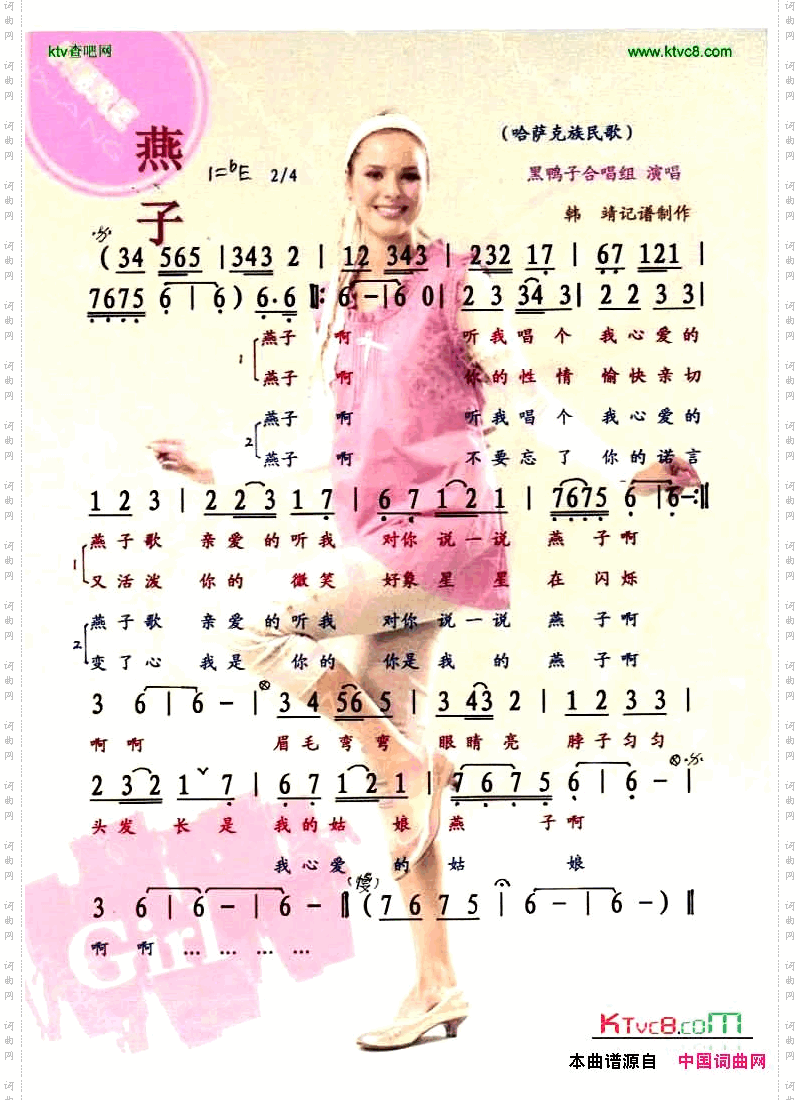 ktv查吧网
www.ktvc8.com
燕子
1=bE 2/4
(哈萨克族民歌)
黑鸭子合唱组 演唱
韩 靖记谱制作
(34 565 | 343 2 | 12 343 | 232 17 | 67 121 |
7675 6 | 6 ) 6·6 ‖: 6 - | 6 0 | 2 3 34 3 | 2 2 3 3 |
1 燕子 啊 听我唱个 我心爱的
燕子 啊 你的性情 愉快亲切
2 燕子 啊 听我唱个 我心爱的
燕子 啊 不要忘了 你的诺言
1 2 3 | 2 2 3 1 7 | 6 7 1 2 1 | 7675 6 | 6 - :‖
1 燕子歌 亲爱的听我 对你说一说 燕子啊
又活泼 你的 微笑 好象星星 在闪烁
2 燕子歌 亲爱的听我 对你说一说 燕子啊
变了心 我是你的 你是我的 燕子啊
3 6 | 6 - | 3 4 56 5 | 3 43 2 | 1 2 3 3 |
啊啊 眉毛弯弯 眼睛亮 脖子匀匀
2 3 2 1 7 | 6 7 1 2 1 | 7 6 7 5 6 | 6 - |
头发 长是 我的姑 娘燕 子啊
我心爱 的姑 娘
3 6 | 6 - | 6 - ‖ (慢) ( 7 6 7 5 | 6 - | 6 - ) ‖
啊 啊 … … … …
Girl
KTvc8.coM
本曲谱源自 中国词曲网